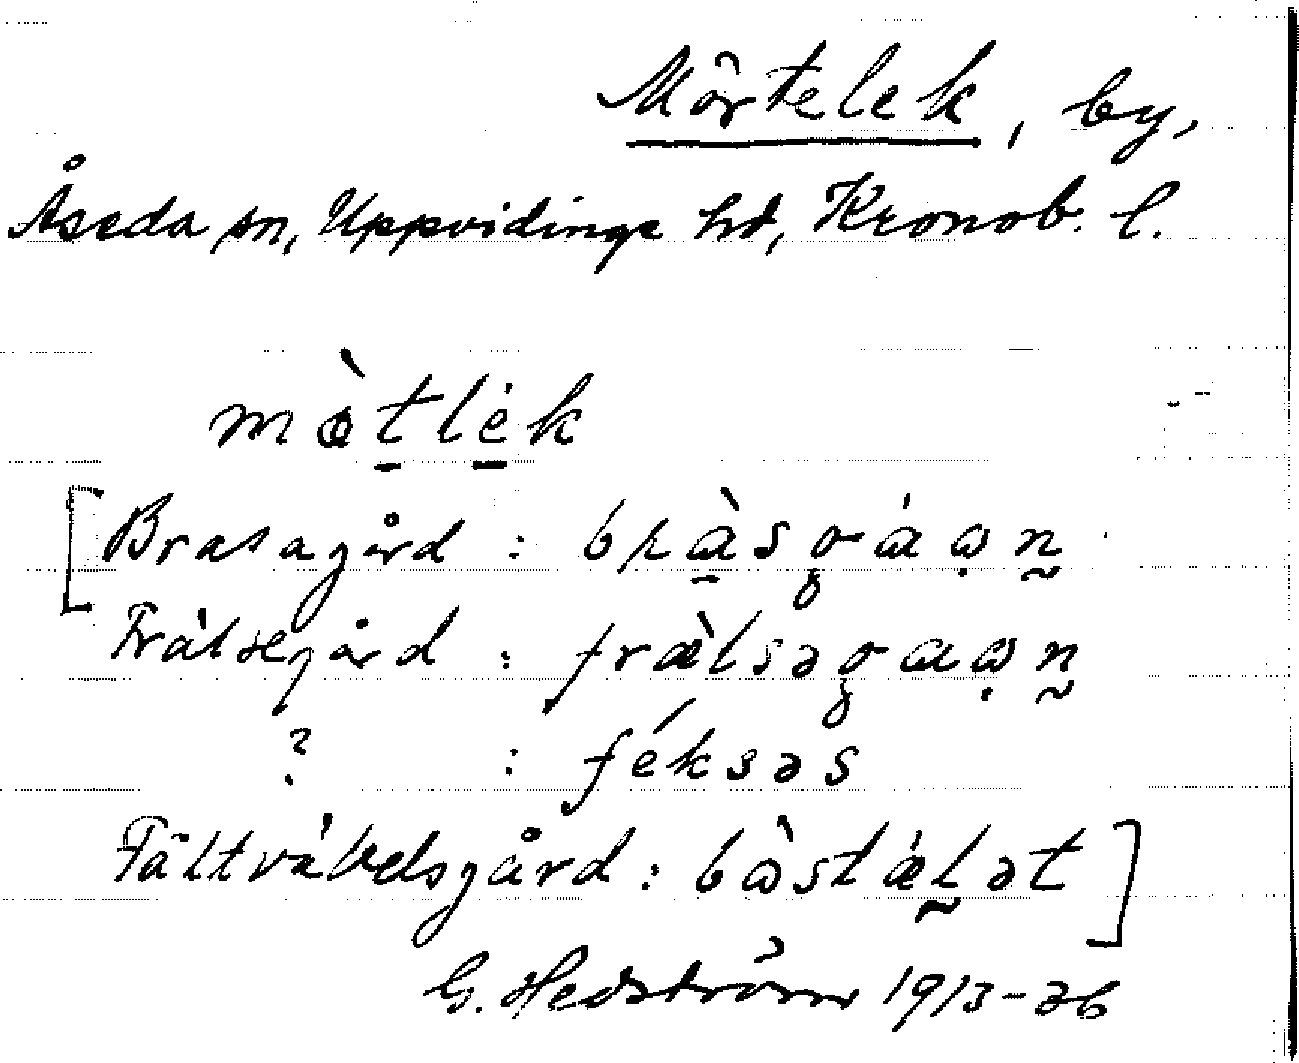 Mörtelek, by,
Åseda sn, Uppvidinge hd, Kronob. l.
mɵ̀t̠le̠k
[Brasagård : bràsgáɷ̣n̰
Frälsegård : frǽlsəgaɷ̣n̰
? : féksəs
Fältväbelsgård : bɷ̀stæl̰ət]
G. Hedström 1913-26